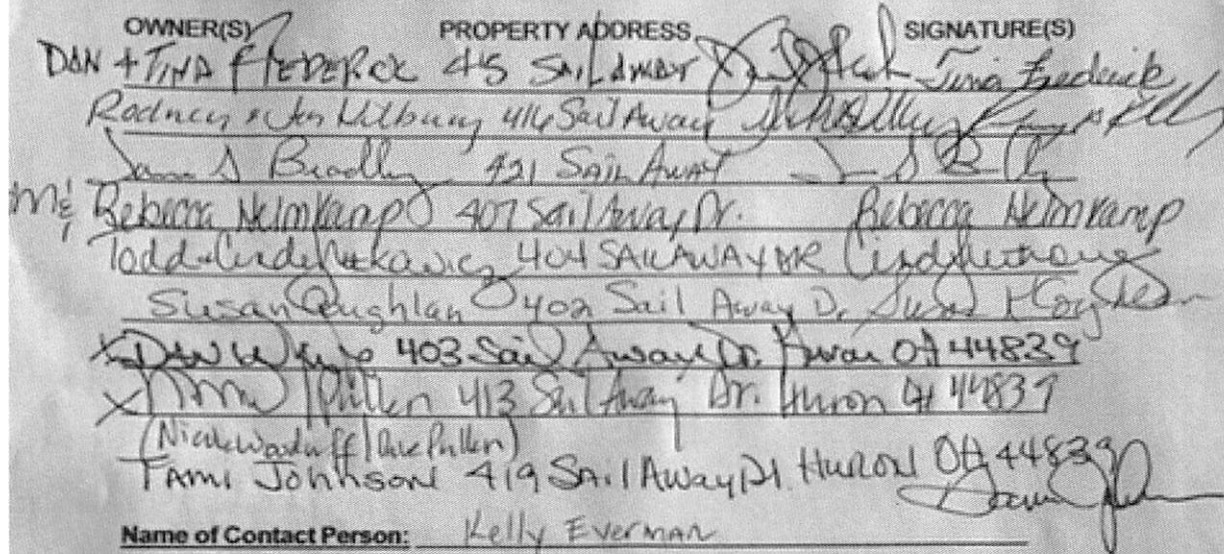 OWNER(S) PROPERTY ADDRESS SIGNATURE(S)
DAN + TINA FREDERICK 415 SAILAWAY Tina Frederick
Rodney & Jen Kilbury 416 Sail Away
James S Bradley 421 SAIL AWAY
Rebecca Helmkamp 407 Sail Away Dr. Rebecca Helmkamp
Todd & Cindy 404 SAIL AWAY DR
Susan Coughlan 402 Sail Away Dr. Susan Coughlan
X 403 Sail Away Dr. Huron OH 44839
X Pullen 413 Sail Away Dr. Huron OH 44839
(Nicole Woodruff / Dave Pullen)
TAMI JOHNSON 419 SAIL AWAY Dr. HURON OH 44839
Name of Contact Person: Kelly Everman